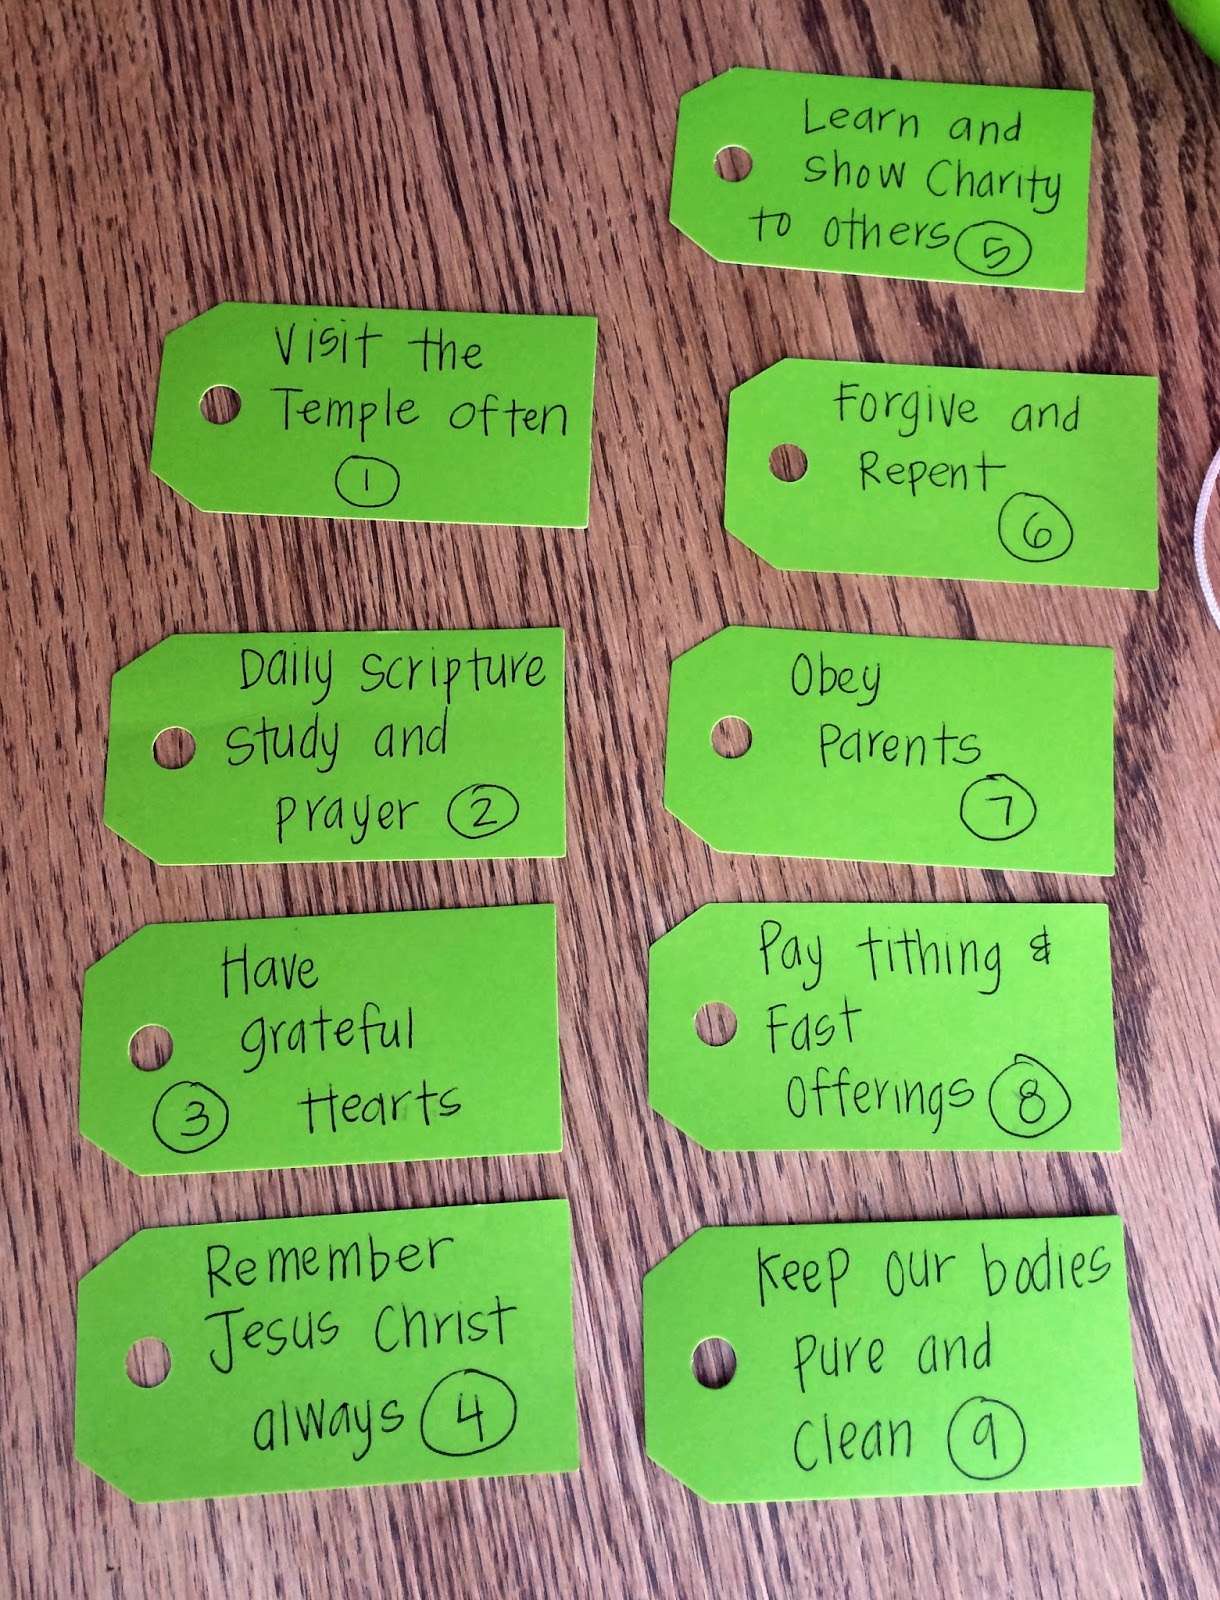 Visit the
Temple often
1
Daily scripture
study and
prayer 2
Have
grateful
Hearts
3
Remember
Jesus Christ
always 4
Learn and
show Charity
to others 5
Forgive and
Repent
6
Obey
Parents
7
Pay tithing &
Fast
Offerings 8
Keep our bodies
pure and
clean 9